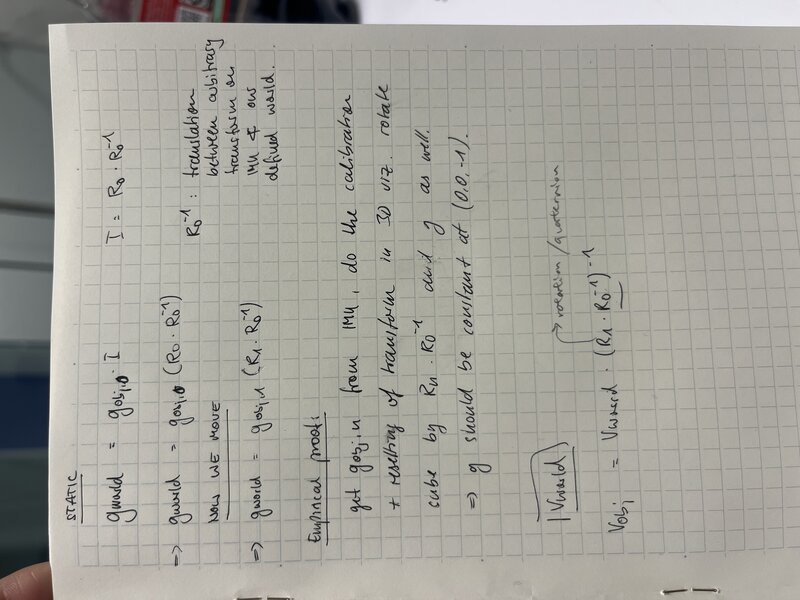 STATIC
gworld = gobj,0 · I
I = R0 · R0^-1
=> gworld = gobj,0 (R0 · R0^-1)
R0^-1 : translation
between arbitrary
transform on
IMU & our
defined world.
NOW WE MOVE
=> gworld = gobj,1 (R1 · R0^-1)
Empirical proof:
get gobj,n from IMU, do the calibration
+ resetting of transform in 3D viz. rotate
cube by Rn · R0^-1 and g as well.
=> g should be constant at (0,0,-1).
|Vworld|
→ rotation/quaternion
Vobj = Vworld · (R1 · R0^-1)^-1